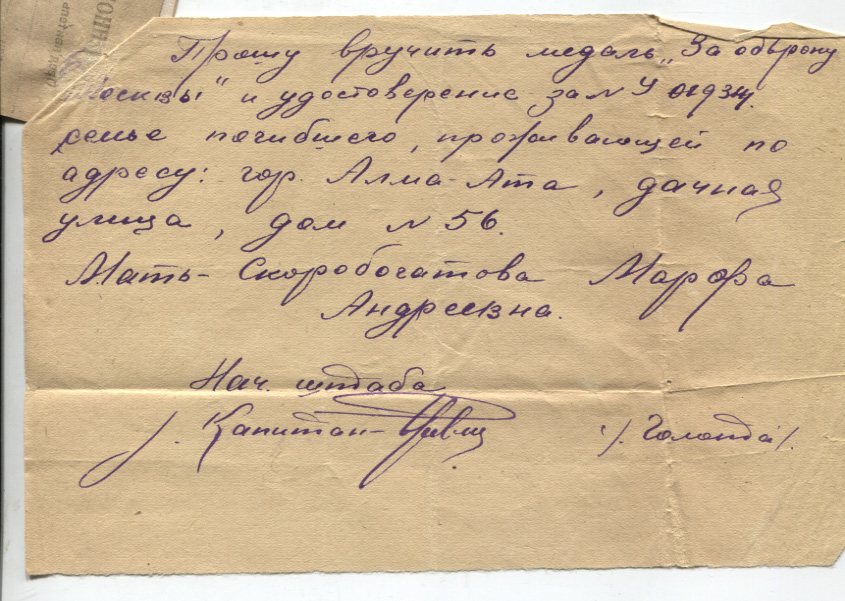 Прошу вручить медаль „За оборону
Москвы" и удостоверение за N У
семье погибшего, проживающей по
адресу: гор. Алма-Ата, дачная
улица, дом N 56.
Мать- Скоробогатова Марфа
Андреевна.
Нач. штаба
Капитан-
/. Голота /.